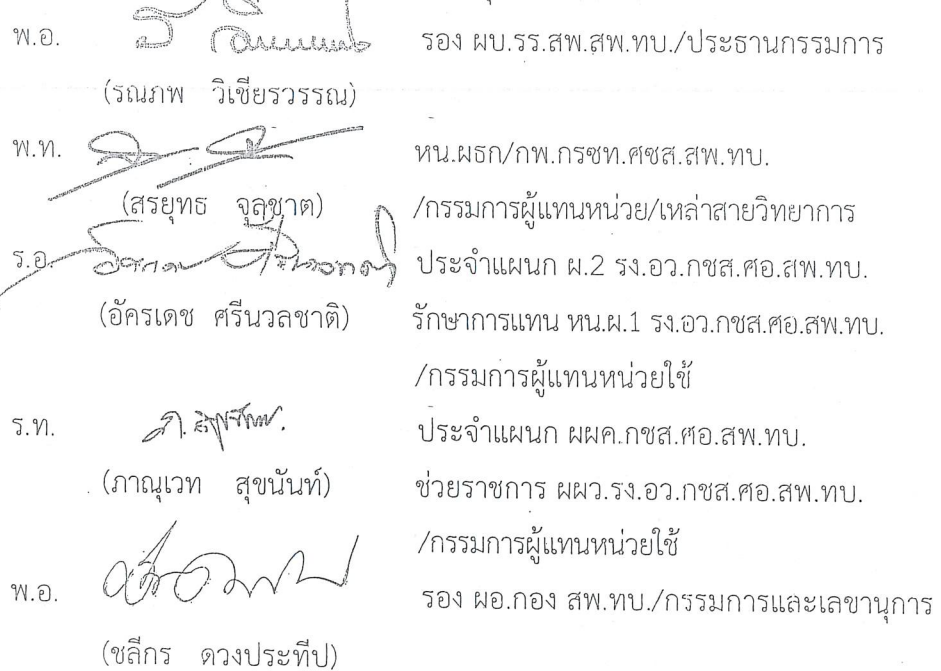 พ.อ. รอง ผบ.รร.สพ.สพ.ทบ./ประธานกรรมการ
(รณภพ วิเชียรวรรณ)
พ.ท. หน.ผธก/กพ.กรซท.ศซส.สพ.ทบ.
(สรยุทธ จุลชาต) /กรรมการผู้แทนหน่วย/เหล่าสายวิทยาการ
ร.อ. ประจำแผนก ผ.2 รง.อว.กซส.ศอ.สพ.ทบ.
(อัครเดช ศรีนวลชาติ) รักษาการแทน หน.ผ.1 รง.อว.กซส.ศอ.สพ.ทบ.
/กรรมการผู้แทนหน่วยใช้
ร.ท. ประจำแผนก ผผค.กชส.ศอ.สพ.ทบ.
(ภาณุเวท สุขนันท์) ช่วยราชการ ผผว.รง.อว.กชส.ศอ.สพ.ทบ.
/กรรมการผู้แทนหน่วยใช้
พ.อ. รอง ผอ.กอง สพ.ทบ./กรรมการและเลขานุการ
(ชลีกร ดวงประทีป)